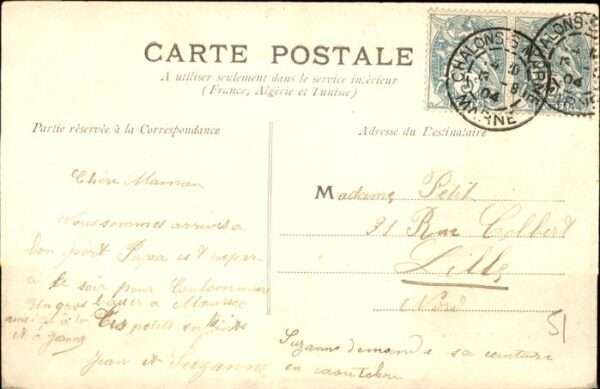 CARTE POSTALE
A utiliser seulement dans le service intérieur
(France, Algérie et Tunisie)
Partie réservée à la Correspondance
Adresse du Destinataire
Chère Maman
Nous sommes arrivés a
bon port Papa est repar
le soir pour Coulommiers
Un gros baiser a Maurice
ainsi qu'à toi
et à
petits
Jean et Suzanne
Suzanne demande sa ceinture
en caoutchouc
Madame Petit
91 Rue Colbert
Lille
Nord
51
CHALONS-S-MARNE
04
MARNE
CHALONS-S
04